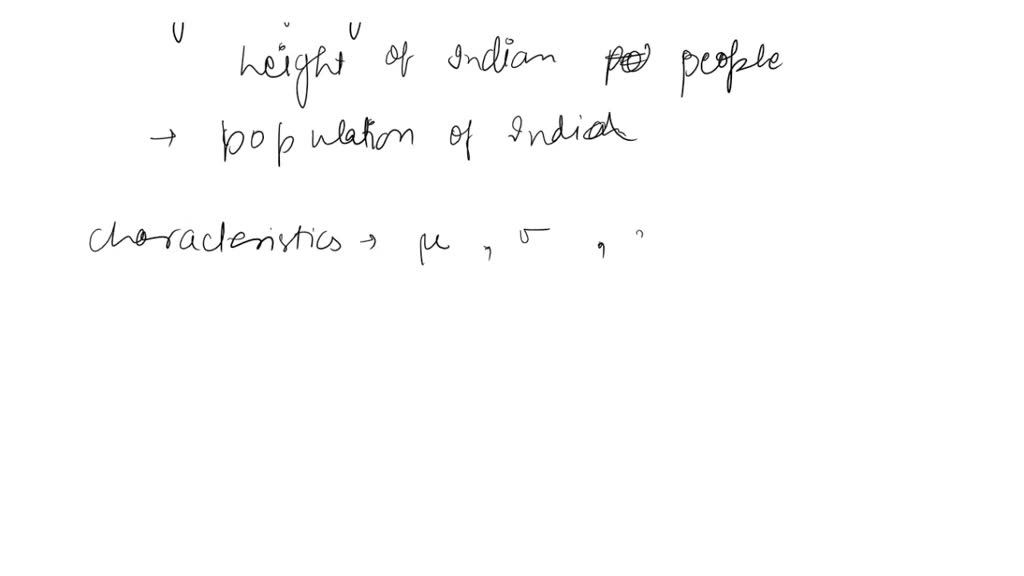 height of Indian people
→ population of India
characteristics → μ , σ ,